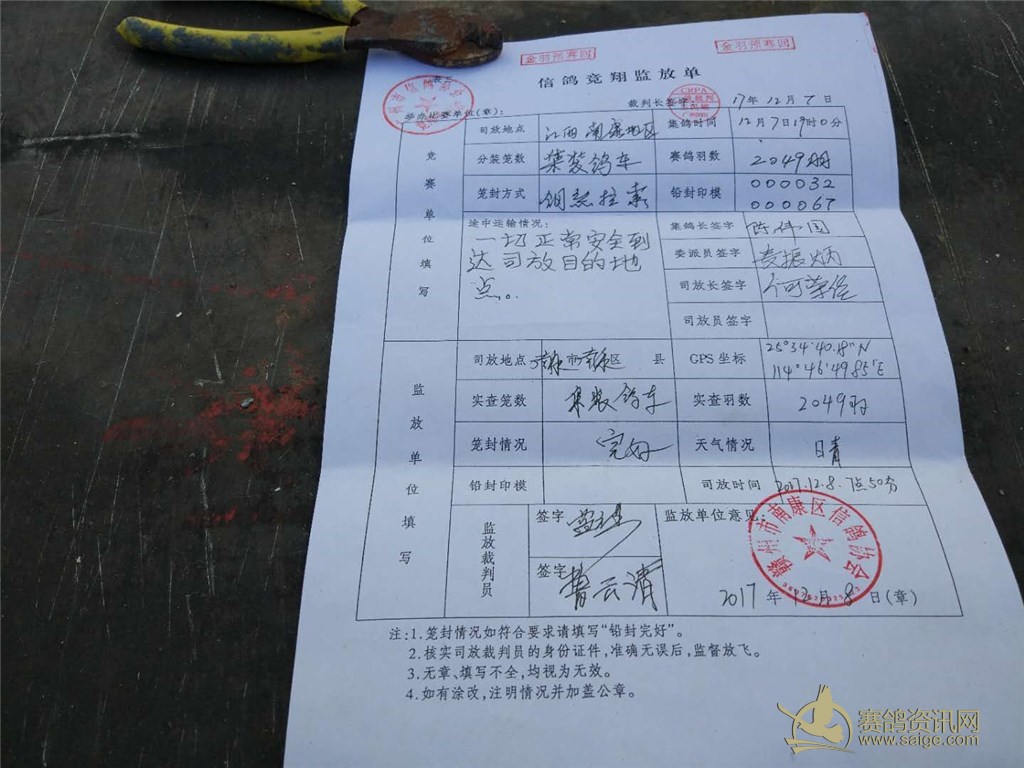 金羽预赛回
金羽预赛回
信鸽竞翔监放单
举办比赛单位(章):
裁判长签字
17年12月7日
竞赛单位填写
司放地点
江西南康地区
集鸽时间
12月7日19时0分
分装笼数
集装鸽车
赛鸽羽数
2049羽
笼封方式
钢丝拉索
铅封印模
000032
000067
途中运输情况:
一切正常安全到
达司放目的地
点。
集鸽长签字
陈伟国
委派员签字
振炳
司放长签字
何荣
司放员签字
监放单位填写
司放地点
市南康区 县
GPS 坐标
25°34'40.18"N
114°46'49.85"E
实查笼数
集装鸽车
实查羽数
2049羽
笼封情况
完好
天气情况
晴
铅封印模
司放时间
2017.12.8.7点50分
监放裁判员
签字
签字
曹云清
监放单位意见:
赣州市南康区信鸽协会
2017年12月8日(章)
注:1.笼封情况如符合要求请填写“铅封完好”。
2.核实司放裁判员的身份证件,准确无误后,监督放飞。
3.无章、填写不全,均视为无效。
4.如有涂改,注明情况并加盖公章。
赛鸽资讯网
www.saige.com